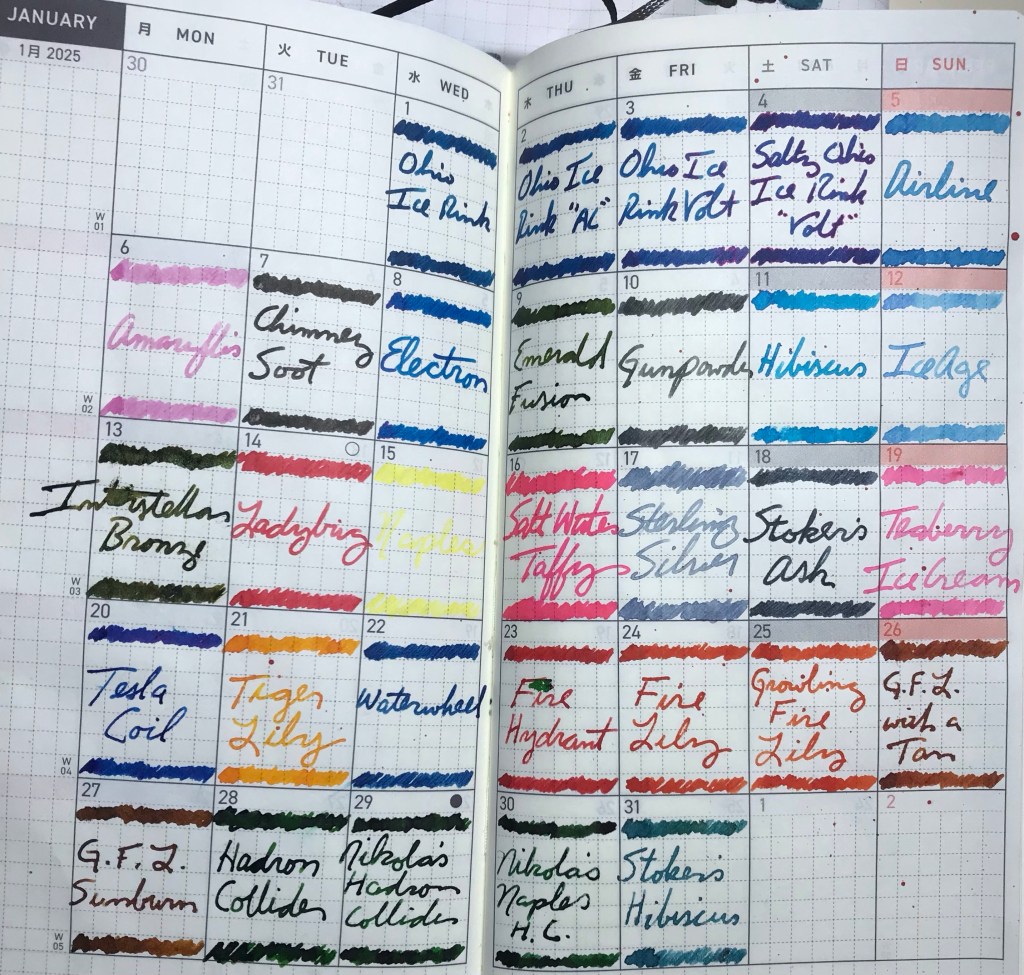 JANUARY
1月 2025
月 MON
火 TUE
水 WED
木 THU
金 FRI
土 SAT
日 SUN
W 01
30
31
1
Ohio
Ice Rink
2
Ohio Ice
Rink "AC"
3
Ohio Ice
Rink Volt
4
Salty Ohio
Ice Rink
"Volt"
5
Airline
W 02
6
Amaryllis
7
Chimney
Soot
8
Electron
9
Emerald
Fusion
10
Gunpowder
11
Hibiscus
12
Ice Age
W 03
13
Interstellar
Bronze
14
Ladybug
15
Naples
16
Salt Water
Taffy
17
Sterling
Silver
18
Stoker's
Ash
19
Teaberry
Ice Cream
W 04
20
Tesla
Coil
21
Tiger
Lily
22
Waterwheel
23
Fire
Hydrant
24
Fire
Lily
25
Growling
Fire
Lily
26
G.F.L.
with a
Tan
W 05
27
G.F.L.
Sunburn
28
Hadron
Collider
29
Nikola's
Hadron
Collider
30
Nikola's
Naples
H.C.
31
Stoker's
Hibiscus
1
2